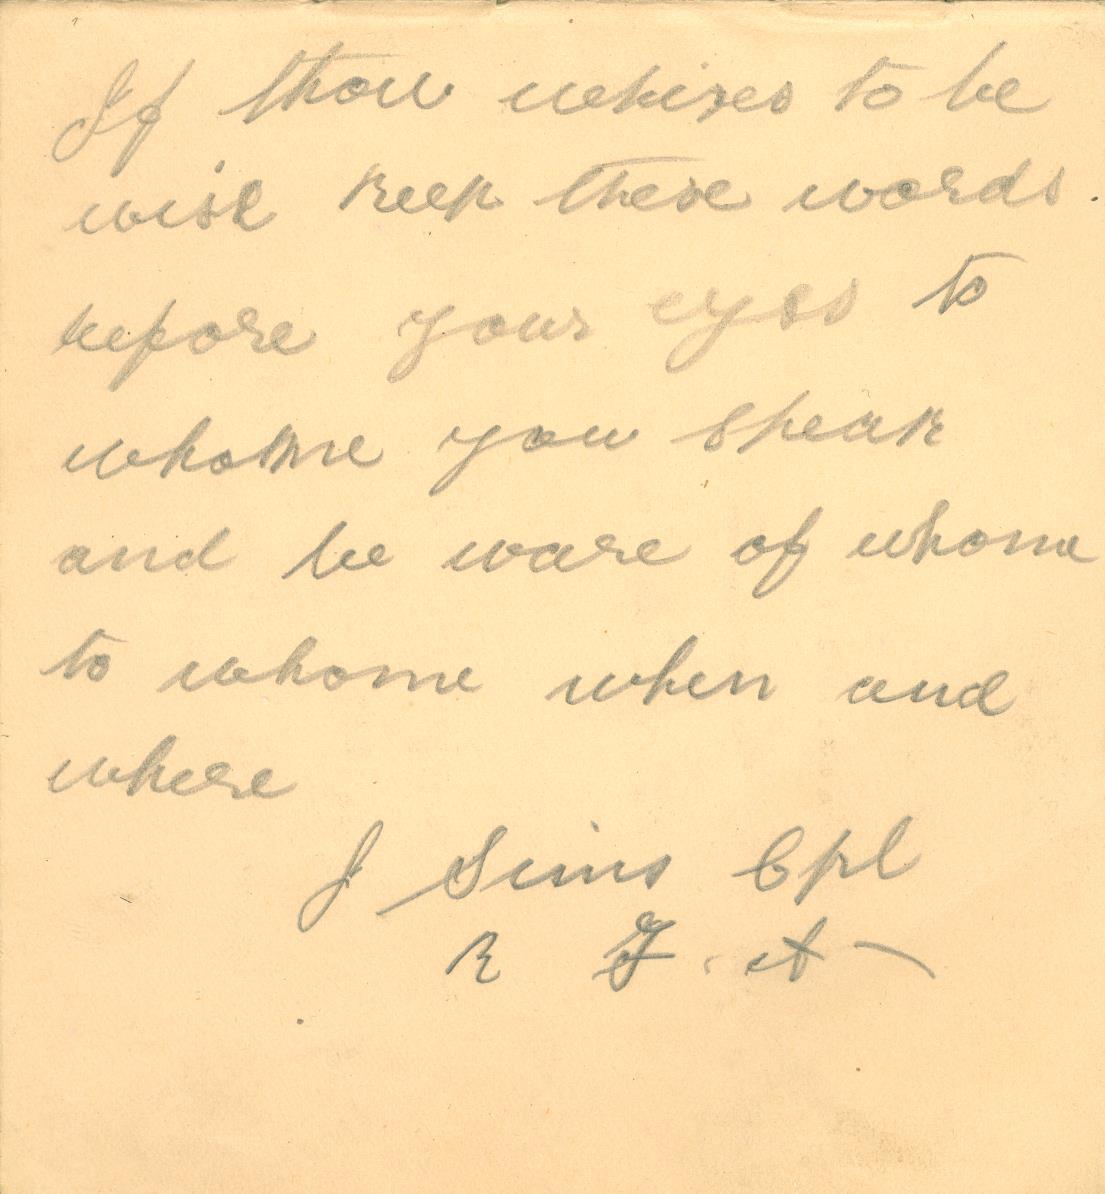 If thou whises to be
wise keep these words.
before your eyes to
whome you speak
and be ware of whome
to whome when and
where
J Sims Cpl
R F. A